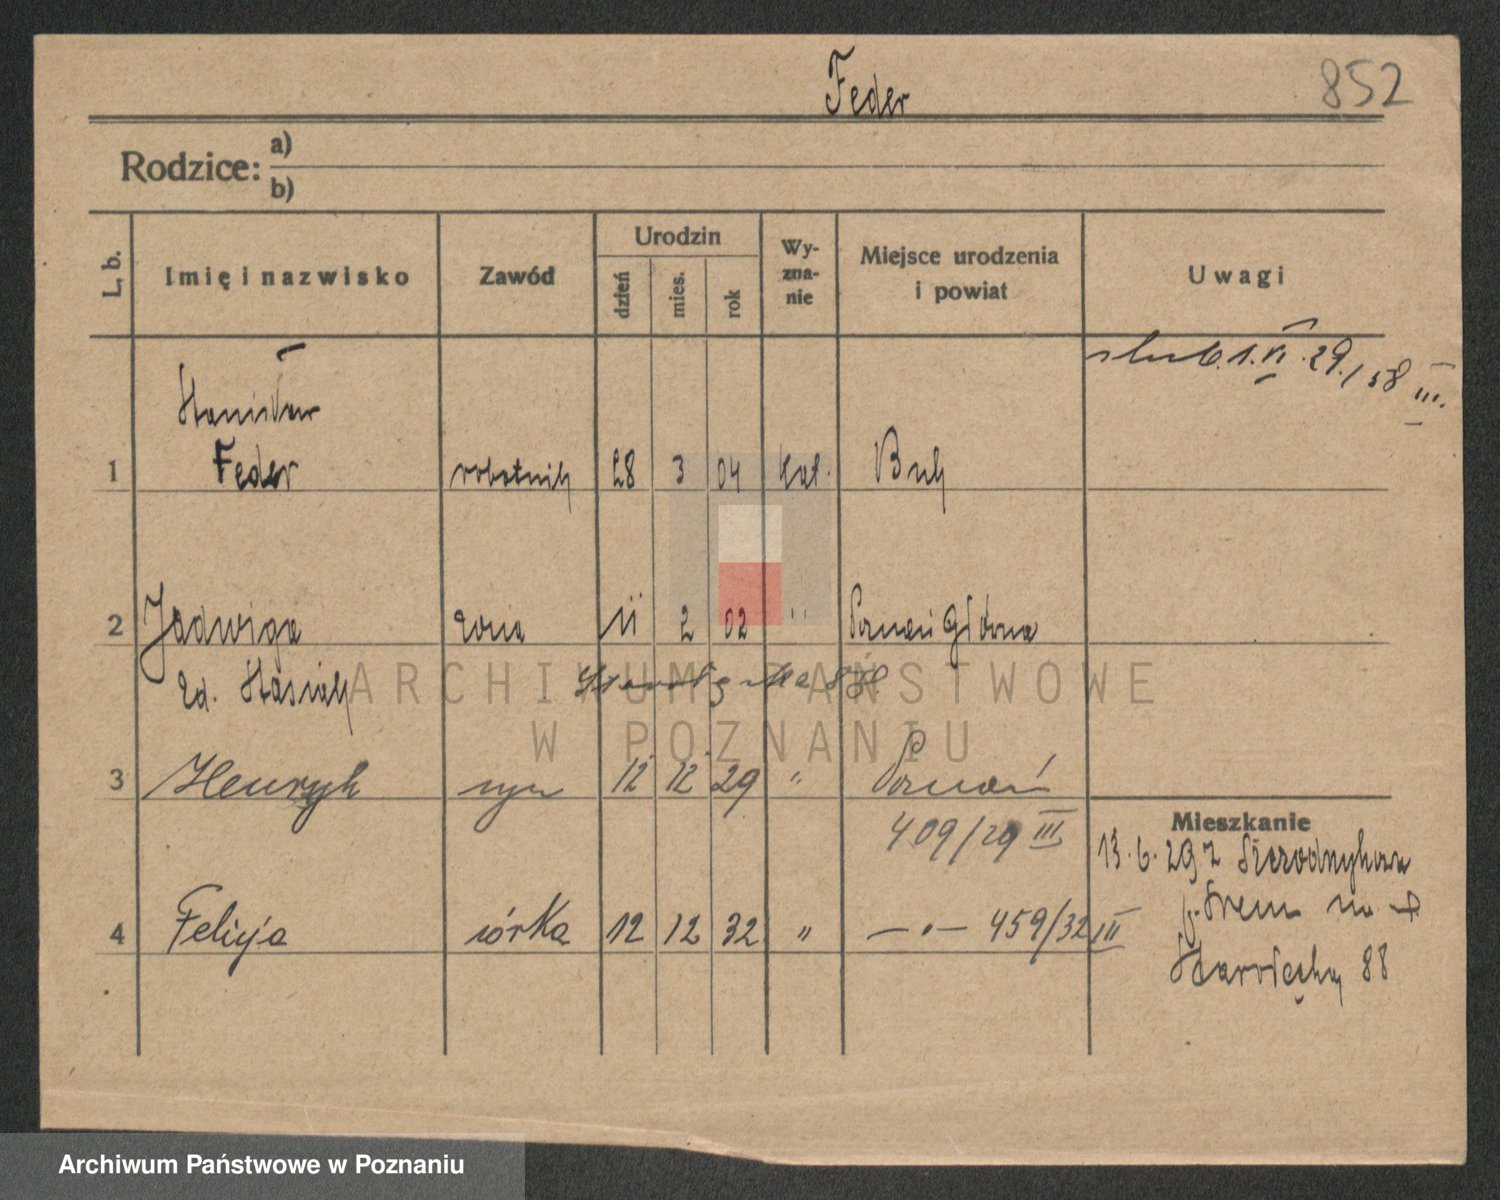 Feder
852
Rodzice: a)
b)
L. b. Imię i nazwisko Zawód Urodzin dzień mies. rok Wyznanie Miejsce urodzenia i powiat Uwagi
ślub. 1. VI. 29. / 58 III.
Stanisław
1 Feder robotnik 28 3 04 kat. Buk
2 Jadwiga żona 11 2 02 " Poznań Główna
zd. Stasiak
ARCHIWUM PAŃSTWOWE
W POZNANIU
3 Henryk syn 12 12 29 " Poznań
409/29 III
Mieszkanie
13. 6. 29 z
4 Felicja córka 12 12 32 " — " — 459/32 III
Starołęcka 88
Archiwum Państwowe w Poznaniu